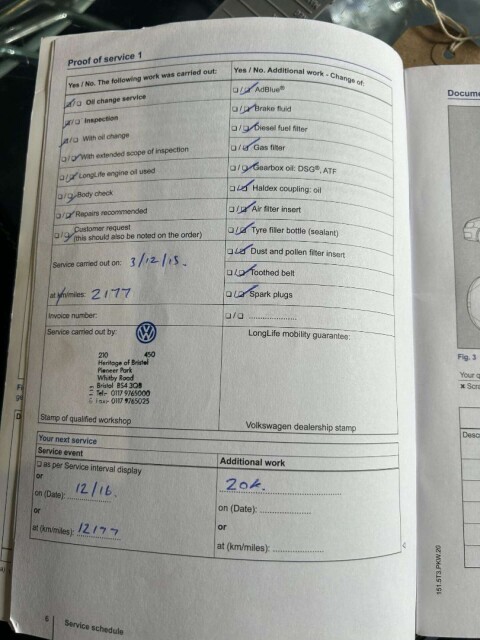 Proof of service 1
Yes / No. The following work was carried out:
Oil change service
Inspection
With oil change
With extended scope of inspection
LongLife engine oil used
Body check
Repairs recommended
Customer request
(this should also be noted on the order)
Service carried out on: 3/12/15.
at km/miles: 2177
Invoice number:
Service carried out by:
210 450
Heritage of Bristol
Pioneer Park
Whitby Road
Bristol BS4 3QB
Tel: 0117 9765000
Fax: 0117 9765025
Stamp of qualified workshop
Yes / No. Additional work - Change of:
AdBlue®
Brake fluid
Diesel fuel filter
Gas filter
Gearbox oil: DSG®, ATF
Haldex coupling: oil
Air filter insert
Tyre filler bottle (sealant)
Dust and pollen filter insert
Toothed belt
Spark plugs
LongLife mobility guarantee:
Volkswagen dealership stamp
Your next service
Service event
as per Service interval display
or
on (Date): 12/16.
or
at (km/miles): 12177
Additional work
20k.
on (Date):
or
at (km/miles):
6 Service schedule
Docume
Fig. 3
Your q
Desc
151.5T3.PKW.20